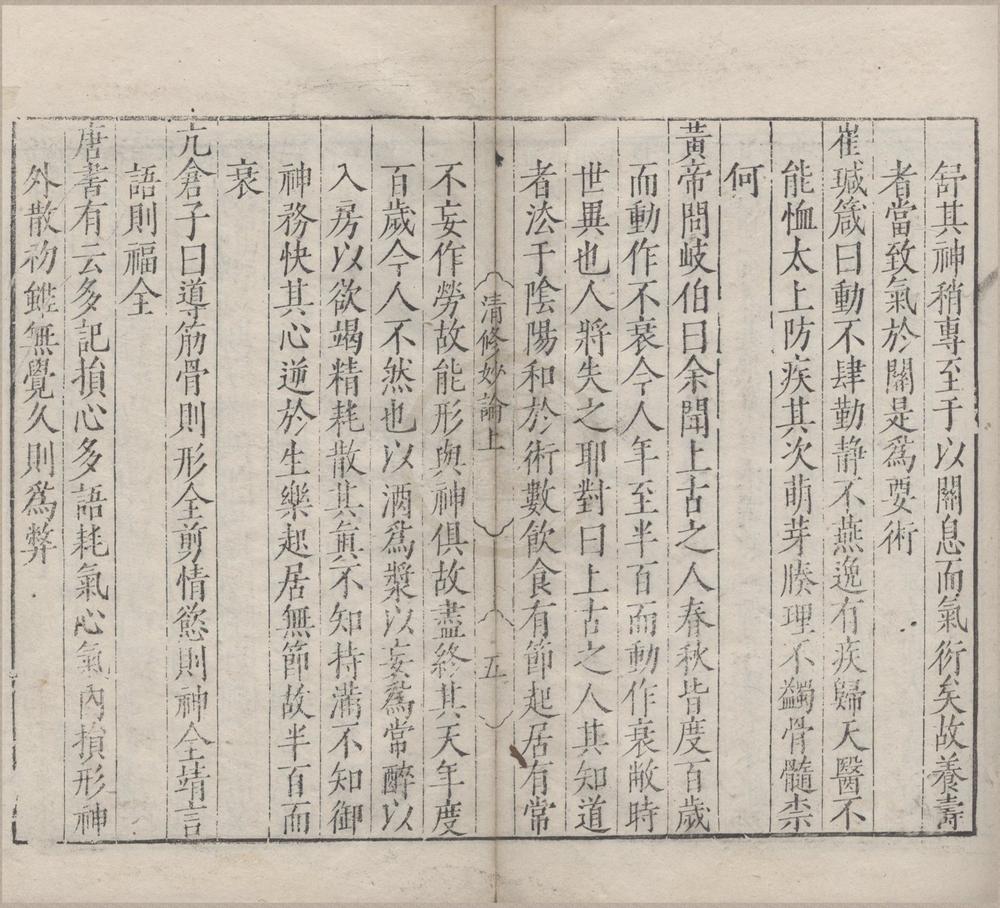 舒其神稍專至于以關息而氣衍矣故養壽
者當致氣於關是爲要術
崔瑊箴曰動不肆勤靜不燕逸有疾歸天醫不
能恤太上防疾其次萌芽腠理不蠲骨髓柰
何
黃帝問岐伯曰余聞上古之人春秋皆度百歲
而動作不衰今人年至半百而動作衰敝時
世異也人將失之耶對曰上古之人其知道
者法于陰陽和於術數飲食有節起居有常
清修妙論上
五
不妄作勞故能形與神俱故盡終其天年度
百歲今人不然也以酒爲漿以妄爲常醉以
入房以欲竭精耗散其真不知持滿不知御
神務快其心逆於生樂起居無節故半百而
衰
亢倉子曰導筋骨則形全剪情慾則神全靖言
語則福全
唐書有云多記損心多語耗氣心氣內損形神
外散初雖無覺久則爲弊